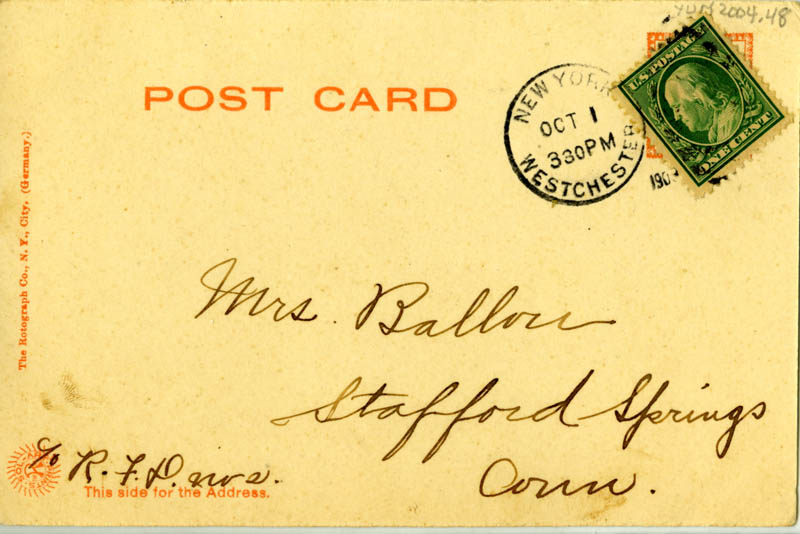 2004.48
POST CARD
U.S. POSTAGE
ONE CENT
NEW YORK
OCT 1
330PM
WESTCHESTER
190
The Rotograph Co., N. Y., City, (Germany.)
Mrs. Ballou
Stafford Springs
Conn.
c/o R. F. D. no 2.
This side for the Address.